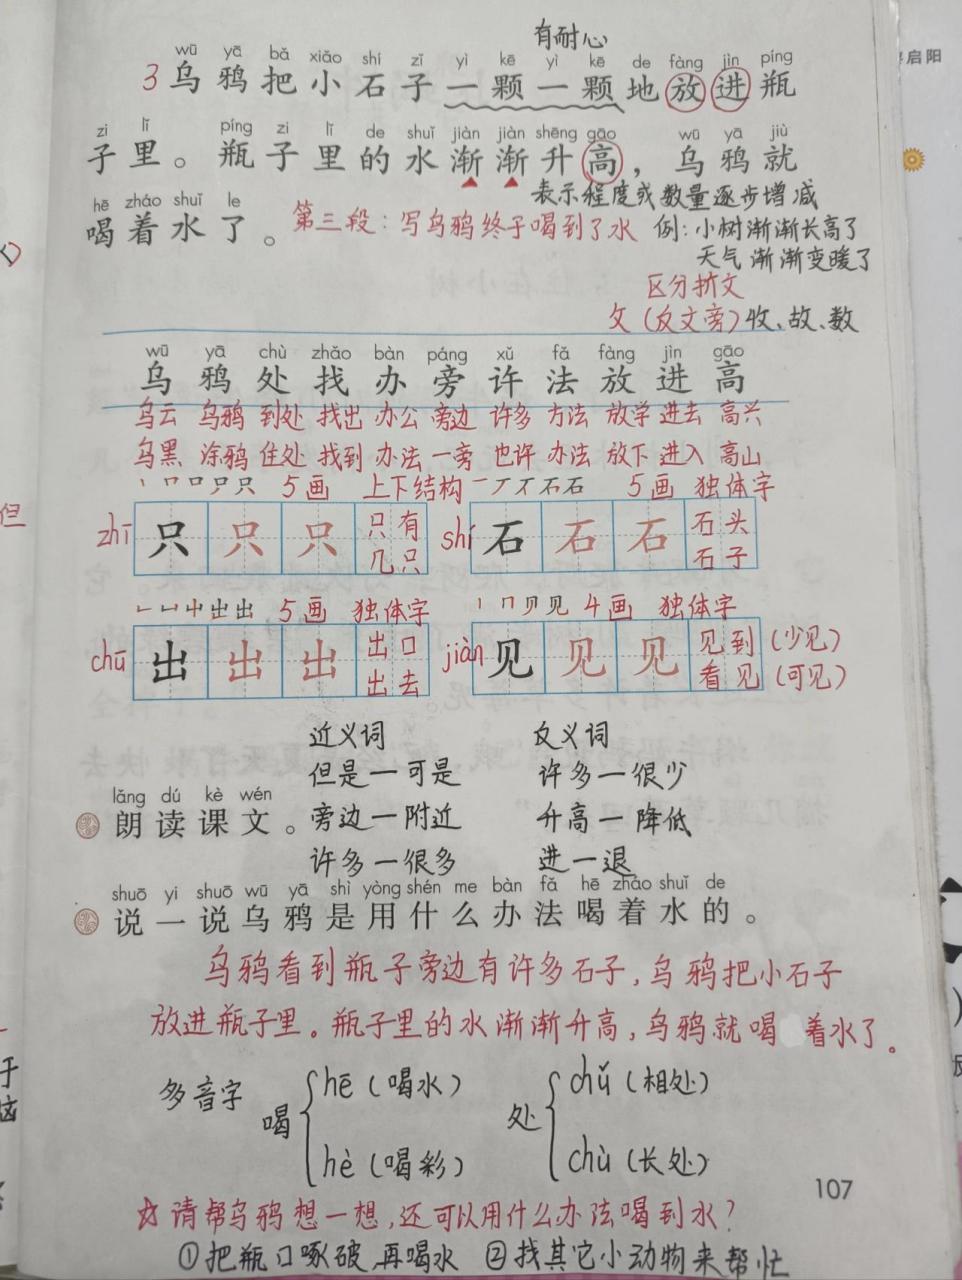 有耐心
wū yā bǎ xiǎo shí zǐ yì kē yì kē de fàng jìn píng
3 乌鸦把小石子一颗一颗地放进瓶
zi lǐ píng zi lǐ de shuǐ jiàn jiàn shēng gāo wū yā jiù
子里。瓶子里的水渐渐升高，乌鸦就
表示程度或数量逐步增减
hē zháo shuǐ le
喝着水了。 第三段：写乌鸦终于喝到了水 例：小树渐渐长高了
天气渐渐变暖了
区分折文
攵（反文旁）收、故、数
wū yā chù zhǎo bàn páng xǔ fǎ fàng jìn gāo
乌 鸦 处 找 办 旁 许 法 放 进 高
乌云 乌鸦 到处 找出 办公 旁边 许多 方法 放学 进去 高兴
乌黑 涂鸦 住处 找到 办法 一旁 也许 办法 放下 进入 高山
5画 上下结构 5画 独体字
zhī 只 只 只 只有 几只 shí 石 石 石 石头 石子
5画 独体字 4画 独体字
chū 出 出 出 出口 出去 jiàn 见 见 见 见到（少见） 看见（可见）
近义词 反义词
但是一可是 许多一很少
lǎng dú kè wén
朗读课文。 旁边一附近 升高一降低
许多一很多 进一退
shuō yi shuō wū yā shì yòng shén me bàn fǎ hē zháo shuǐ de
说一说乌鸦是用什么办法喝着水的。
乌鸦看到瓶子旁边有许多石子，乌鸦把小石子
放进瓶子里。瓶子里的水渐渐升高，乌鸦就喝着水了。
多音字 喝 hē（喝水） hè（喝彩） 处 chǔ（相处） chù（长处）
107
☆请帮乌鸦想一想，还可以用什么办法喝到水？
①把瓶口啄破，再喝水 ②找其它小动物来帮忙
启阳
但